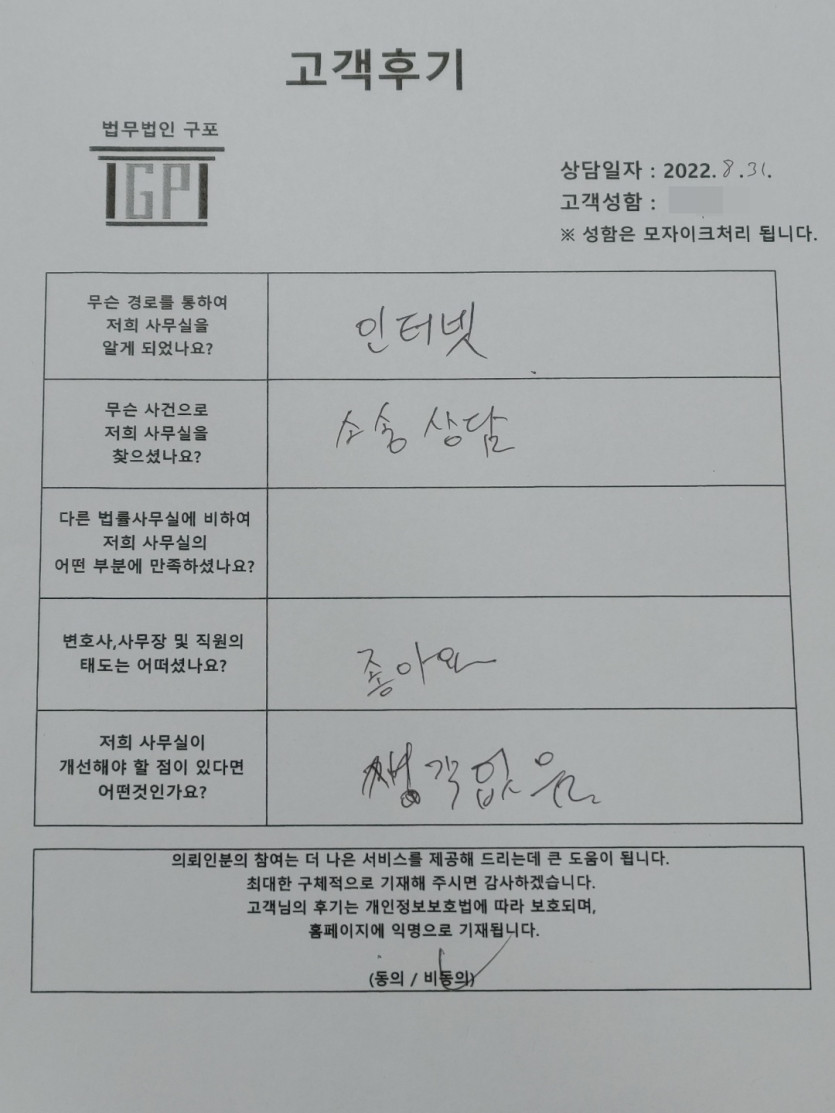 고객후기
법무법인 구포
GP
상담일자 : 2022. 8. 31.
고객성함 :
※ 성함은 모자이크처리 됩니다.
무슨 경로를 통하여
저희 사무실을
알게 되었나요?
인터넷
무슨 사건으로
저희 사무실을
찾으셨나요?
소송 상담
다른 법률사무실에 비하여
저희 사무실의
어떤 부분에 만족하셨나요?
변호사,사무장 및 직원의
태도는 어떠셨나요?
좋아요
저희 사무실이
개선해야 할 점이 있다면
어떤것인가요?
생각없음
의뢰인분의 참여는 더 나은 서비스를 제공해 드리는데 큰 도움이 됩니다.
최대한 구체적으로 기재해 주시면 감사하겠습니다.
고객님의 후기는 개인정보보호법에 따라 보호되며,
홈페이지에 익명으로 기재됩니다.
(동의 / 비동의)